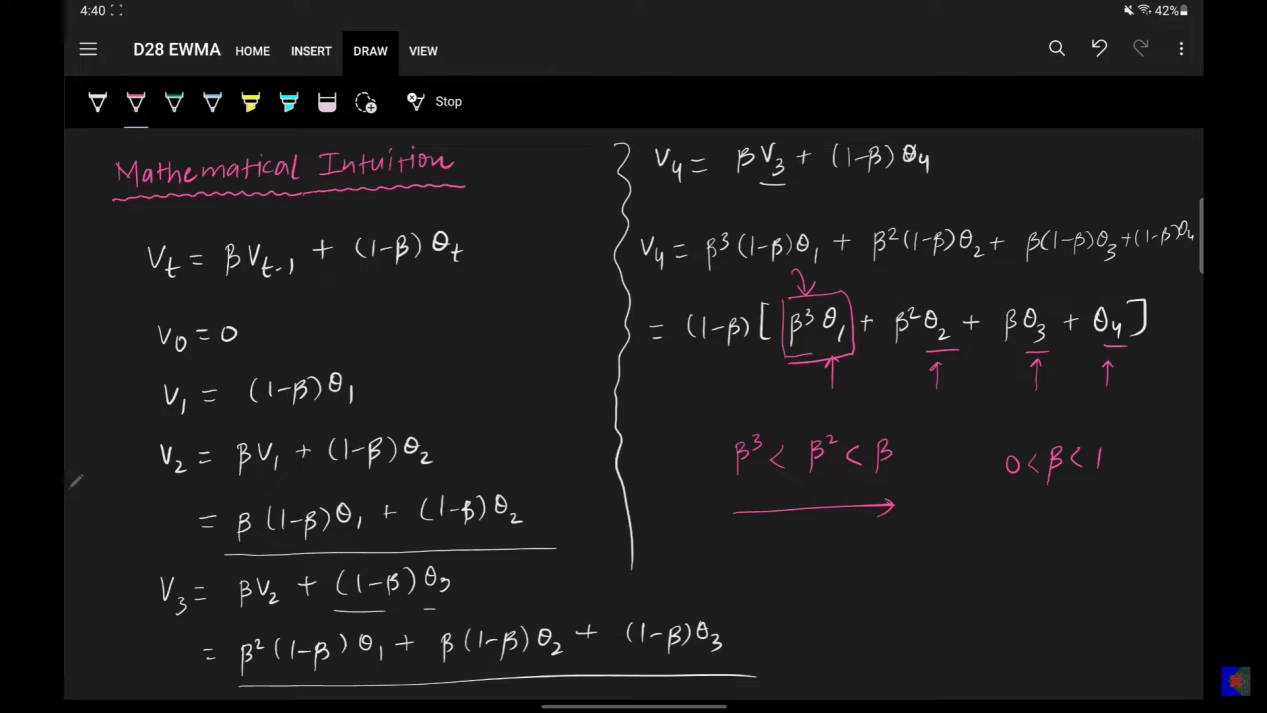 4:40 42%
D28 EWMA HOME INSERT DRAW VIEW
Stop
Mathematical Intuition
Vt = βVt-1 + (1-β)θt
V0 = 0
V1 = (1-β)θ1
V2 = βV1 + (1-β)θ2
= β(1-β)θ1 + (1-β)θ2
V3 = βV2 + (1-β)θ3
= β²(1-β)θ1 + β(1-β)θ2 + (1-β)θ3
V4 = βV3 + (1-β)θ4
V4 = β³(1-β)θ1 + β²(1-β)θ2 + β(1-β)θ3+(1-β)θ4
= (1-β)[β³θ1 + β²θ2 + βθ3 + θ4]
β³ < β² < β 0<β<1